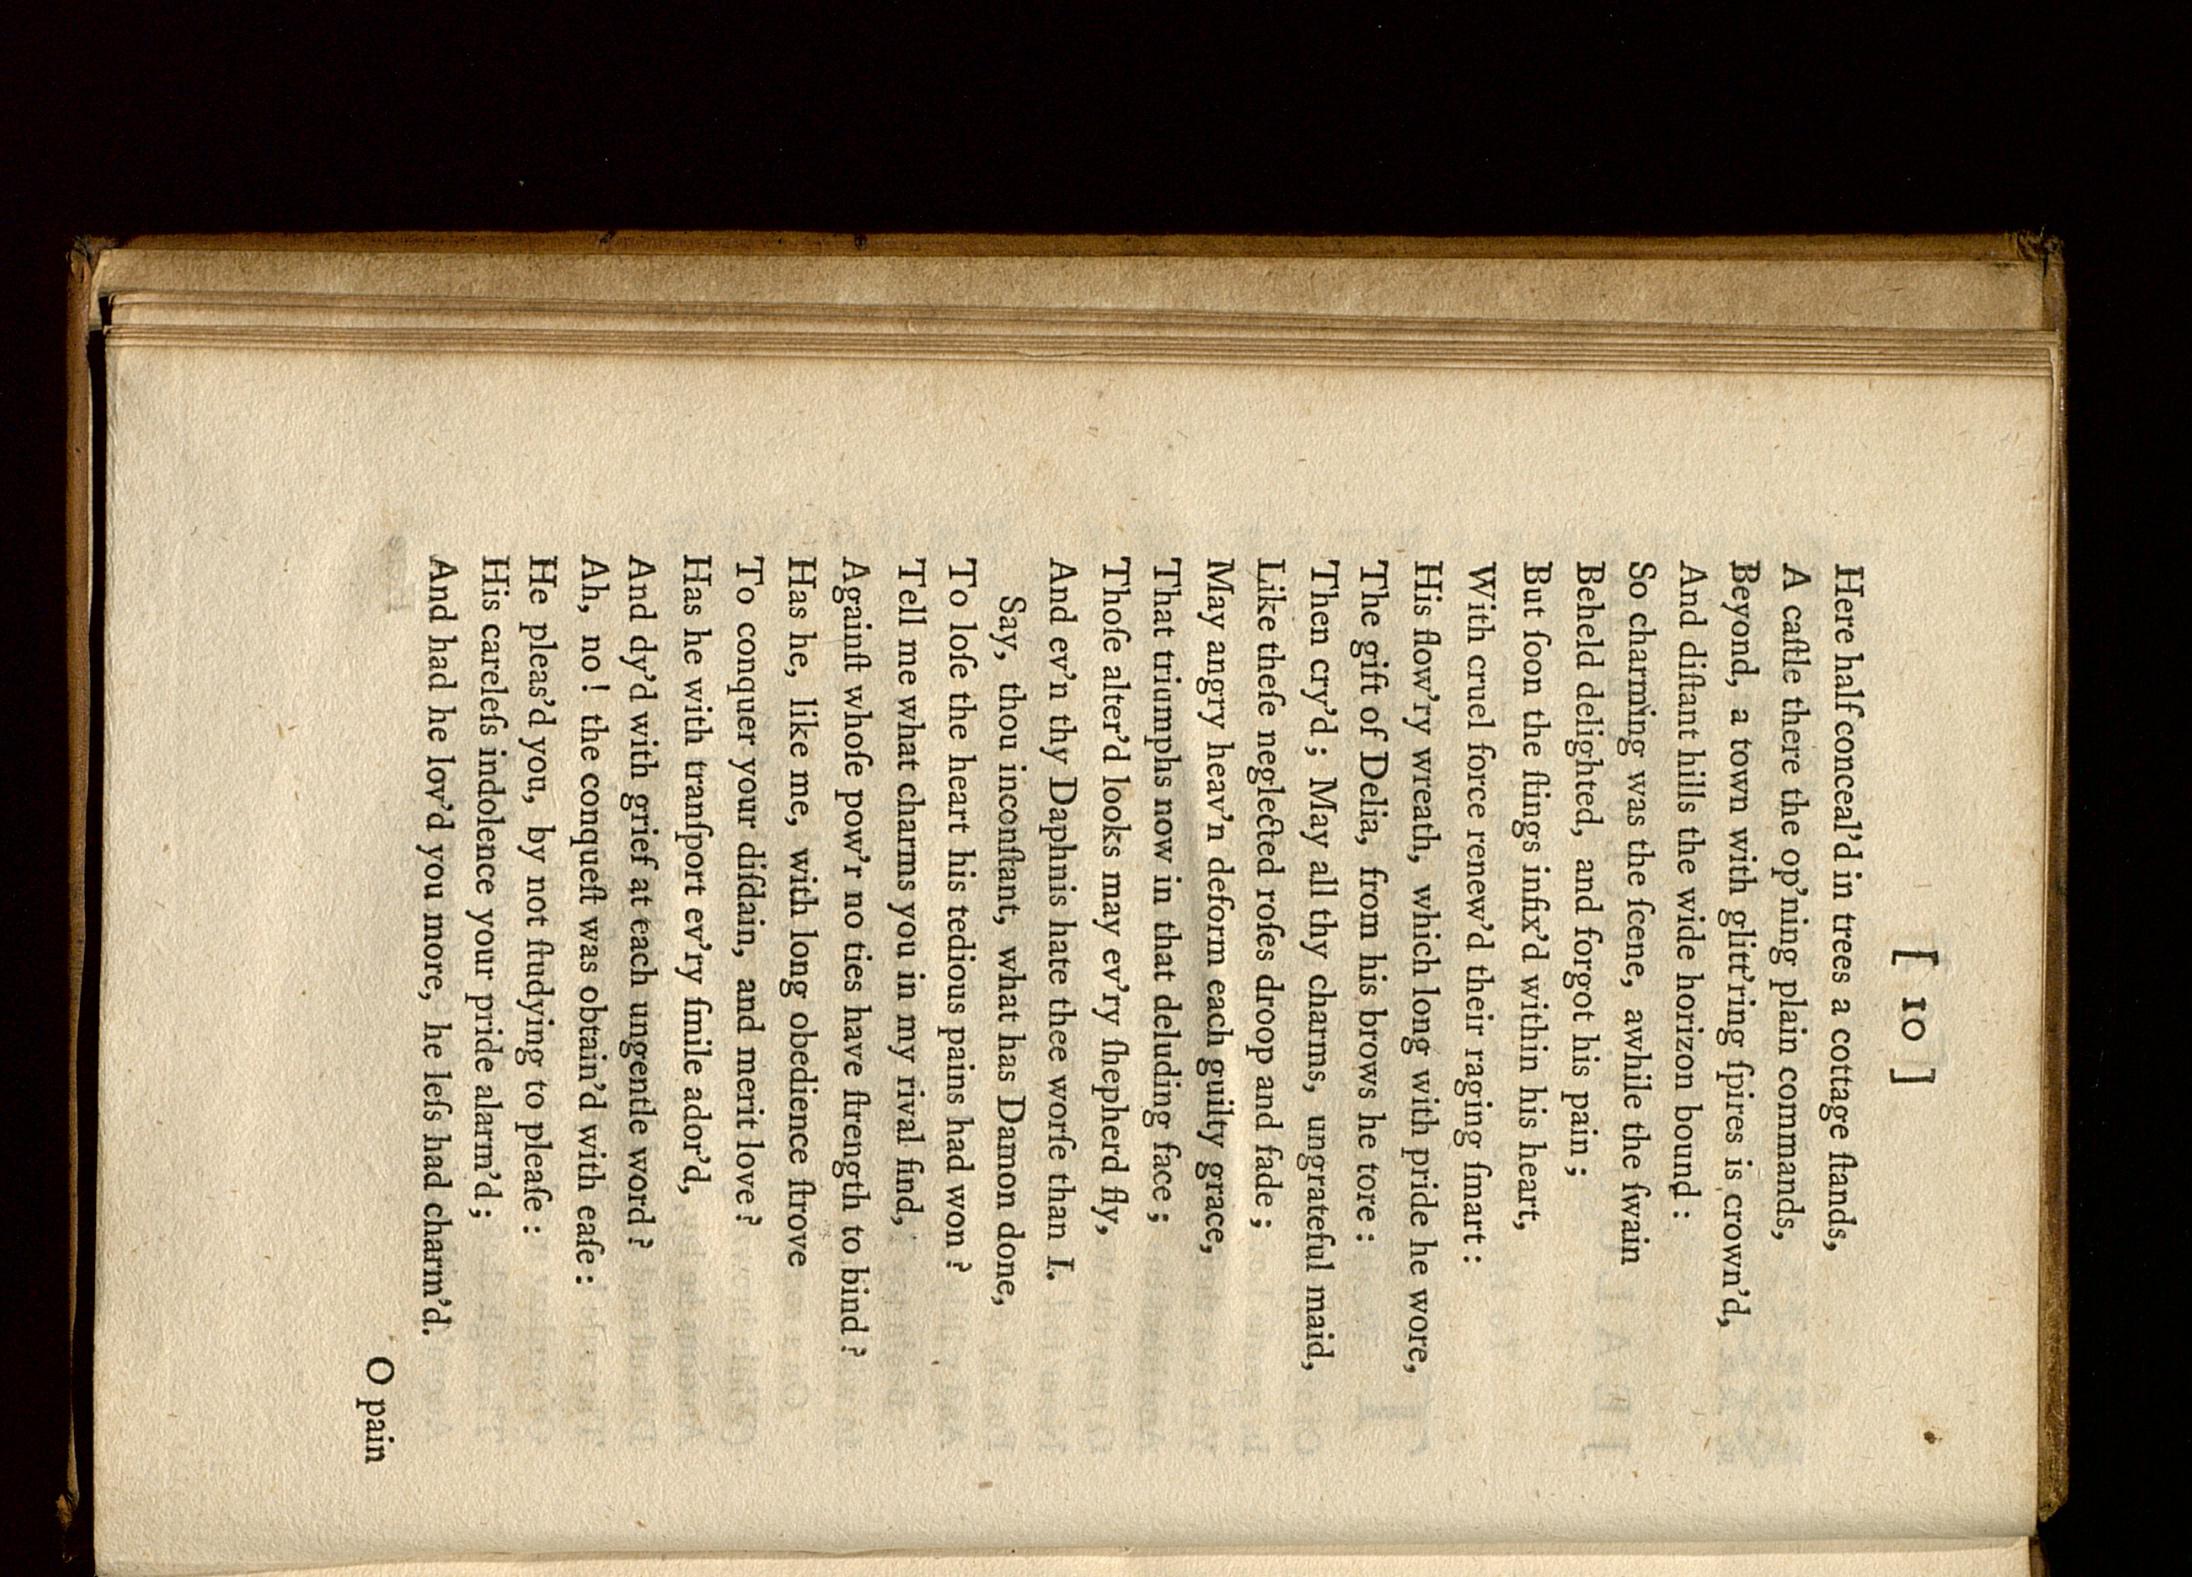 [ 10 ]
Here half conceal'd in trees a cottage ſtands,
A caſtle there the op'ning plain commands,
Beyond, a town with glitt'ring ſpires is crown'd,
And diſtant hills the wide horizon bound :
So charming was the ſcene, awhile the ſwain
Beheld delighted, and forgot his pain ;
But ſoon the ſtings infix'd within his heart,
With cruel force renew'd their raging ſmart :
His flow'ry wreath, which long with pride he wore,
The gift of Delia, from his brows he tore :
Then cry'd ; May all thy charms, ungrateful maid,
Like theſe neglected roſes droop and fade ;
May angry heav'n deform each guilty grace,
That triumphs now in that deluding face ;
Thoſe alter'd looks may ev'ry ſhepherd fly,
And ev'n thy Daphnis hate thee worſe than I.
Say, thou inconſtant, what has Damon done,
To loſe the heart his tedious pains had won ?
Tell me what charms you in my rival find,
Againſt whoſe pow'r no ties have ſtrength to bind ?
Has he, like me, with long obedience ſtrove
To conquer your diſdain, and merit love ?
Has he with tranſport ev'ry ſmile ador'd,
And dy'd with grief at each ungentle word ?
Ah, no ! the conqueſt was obtain'd with eaſe :
He pleas'd you, by not ſtudying to pleaſe :
His careleſs indolence your pride alarm'd ;
And had he lov'd you more, he leſs had charm'd.
O pain